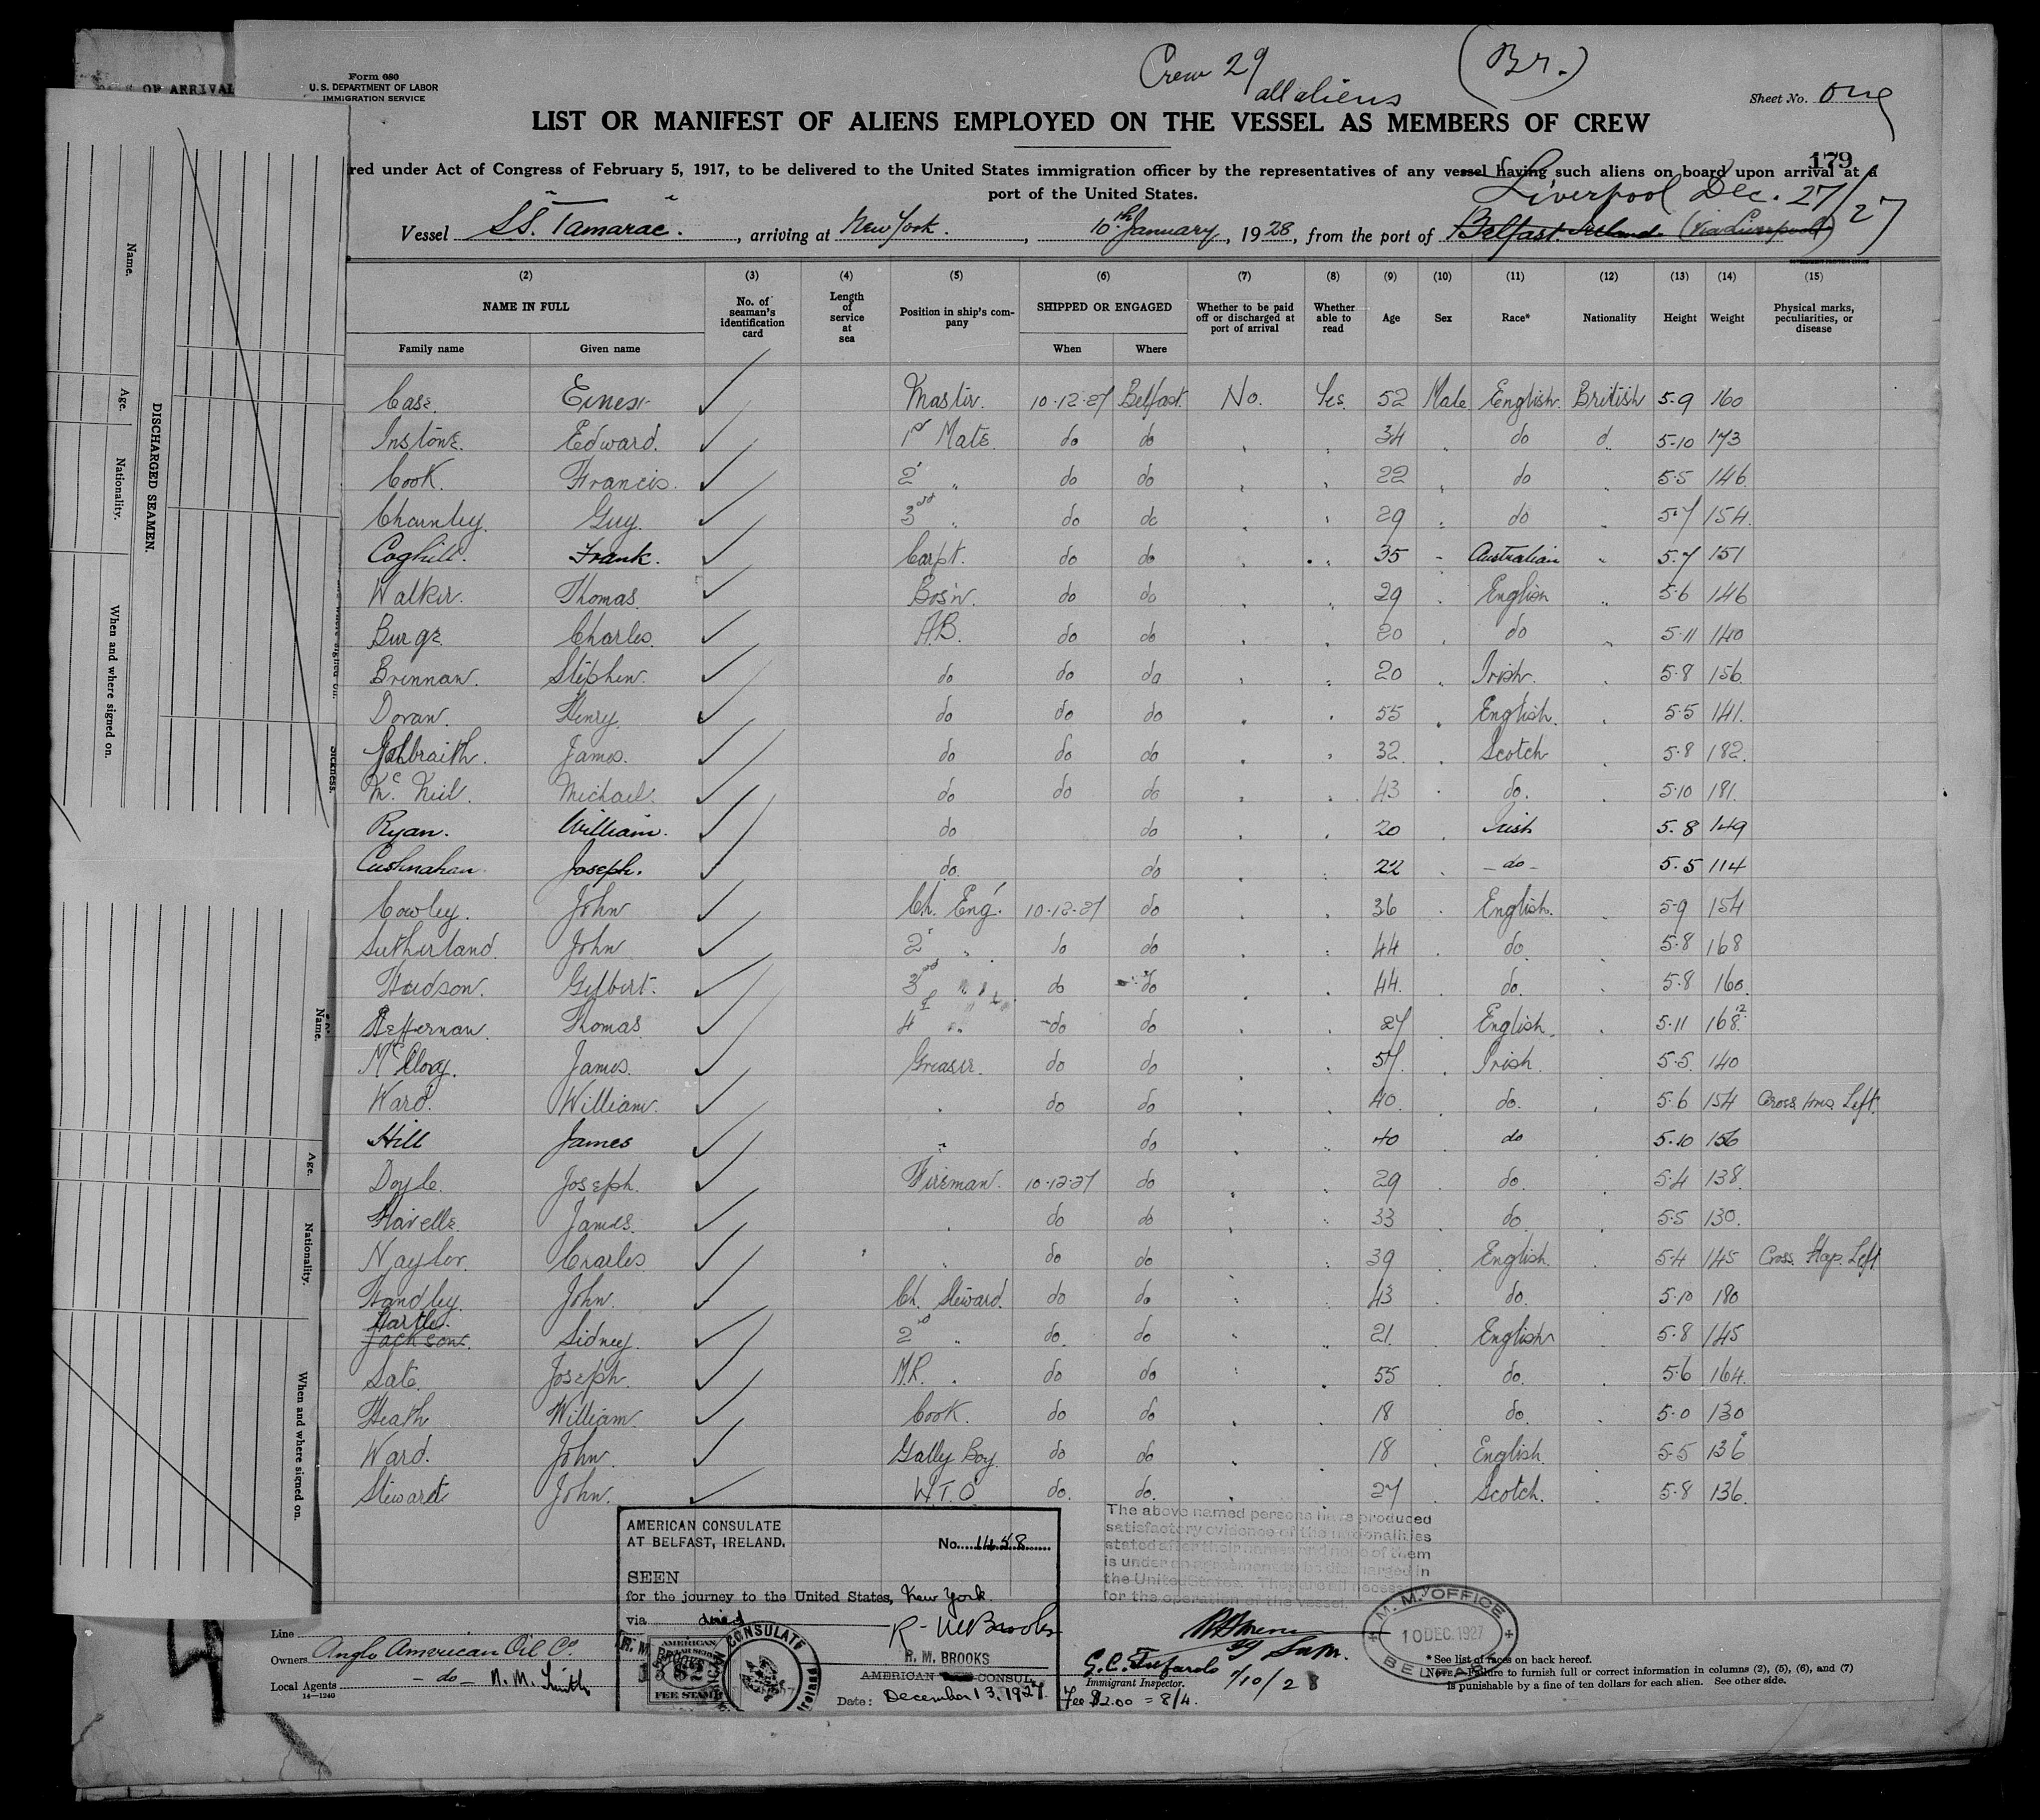 Crew 29
all aliens
(Br.)
Form 680
U. S. DEPARTMENT OF LABOR
IMMIGRATION SERVICE
Sheet No. One
LIST OR MANIFEST OF ALIENS EMPLOYED ON THE VESSEL AS MEMBERS OF CREW
179
red under Act of Congress of February 5, 1917, to be delivered to the United States immigration officer by the representatives of any vessel having such aliens on board upon arrival at a
port of the United States.
Liverpool Dec. 27/27
Vessel SS. Tamarac. , arriving at New York. , 10th January , 1928, from the port of Belfast. Ireland (via Liverpool)
(2) (3) (4) (5) (6) (7) (8) (9) (10) (11) (12) (13) (14) (15)
NAME IN FULL No. of seaman's identification card Length of service at sea Position in ship's company SHIPPED OR ENGAGED Whether to be paid off or discharged at port of arrival Whether able to read Age Sex Race* Nationality Height Weight Physical marks, peculiarities, or disease
Family name Given name When Where
Case. Ernest Master. 10-12-27 Belfast. No. Yes. 52 Male English British 5-9 160
Instone. Edward. 1st Mate. do do 34 do d. 5-10 173
Cook. Francis. 2 " do do 22 do 5-5 146
Charnley. Guy. 3rd " do do 29 do 5-7 154
Coghill. Frank. Carpt. do do 35 Australian 5-7 151
Walker. Thomas. Bos'n. do do 29 English 5-6 146
Burge Charles. A.B. do do 20 do 5-11 140
Brennan. Stephen. do do do 20 Irish. 5-8 156
Doran. Henry. do do do 55 English. 5-5 141
Galbraith. James. do do do 32 Scotch 5-8 182
Mc. Neil. Michael. do do do 43 do. 5-10 181
Ryan. William. do do 20 Irish 5-8 149
Cushnahan Joseph. do. do 22 -do- 5-5 114
Cowley. John Ch. Eng. 10-12-27 do 36 English. 5-9 154
Sutherland John 2 " do do 44 do. 5-8 168
Hudson. Gilbert. 3rd do do 44. do. 5-8 160
Heffernan Thomas 4 " do do 27 English. 5-11 168
McClory. James. Greaser. do do 57. Irish. 5-5 140
Ward. William. do do 40. do. 5-6 154 Left.
Hill James " do 40 do 5-10 156
Doyle. Joseph. Fireman. 10-12-27 do 29 do. 5-4 138
Flavelle. James. do do 33 do. 5-5 130
Naylor. Charles do do 39 English. 5-4 145 Cross. Left
Handley. John. Ch. Steward. do do 43 do. 5-10 180
Hartle.
Jackson. Sidney. 2nd " do do 21. English 5-8 145
Sate. Joseph. M.R. do do 55 do. 5-6 164
Heath William. Cook. do do 18 do. 5-0 130
Ward. John. Gally Boy do do 18 English. 5-5 136
Stewart John. W.T.O. do. do. 27 Scotch. 5-8 136
The above named persons have produced
satisfactory evidence of the nationalities
stated after their names and none of them
is under an agreement to be discharged in
the United States. They are all necessary
for the operation of the vessel.
AMERICAN CONSULATE
AT BELFAST, IRELAND.
No. 1458
SEEN
for the journey to the United States, New York.
via direct
R. M. Brooks
R. M. BROOKS
AMERICAN CONSUL
Date: December 13, 1927.
AMERICAN
FEE STAMP
CONSULATE
M. M. OFFICE
10 DEC. 1927
BELFAST
Immigrant Inspector.
1/10/28
Fee $2.00 = 8/4.
Line
Owners Anglo American Oil Co.
Local Agents -do- N. M. Smith
14—1240
* See list of races on back hereof.
NOTE.—Failure to furnish full or correct information in columns (2), (5), (6), and (7)
is punishable by a fine of ten dollars for each alien. See other side.
OF ARRIVAL
DISCHARGED SEAMEN.
Name.
Age.
Nationality.
When and where signed on.
Sickness.
Name.
Age.
Nationality.
When and where signed on.